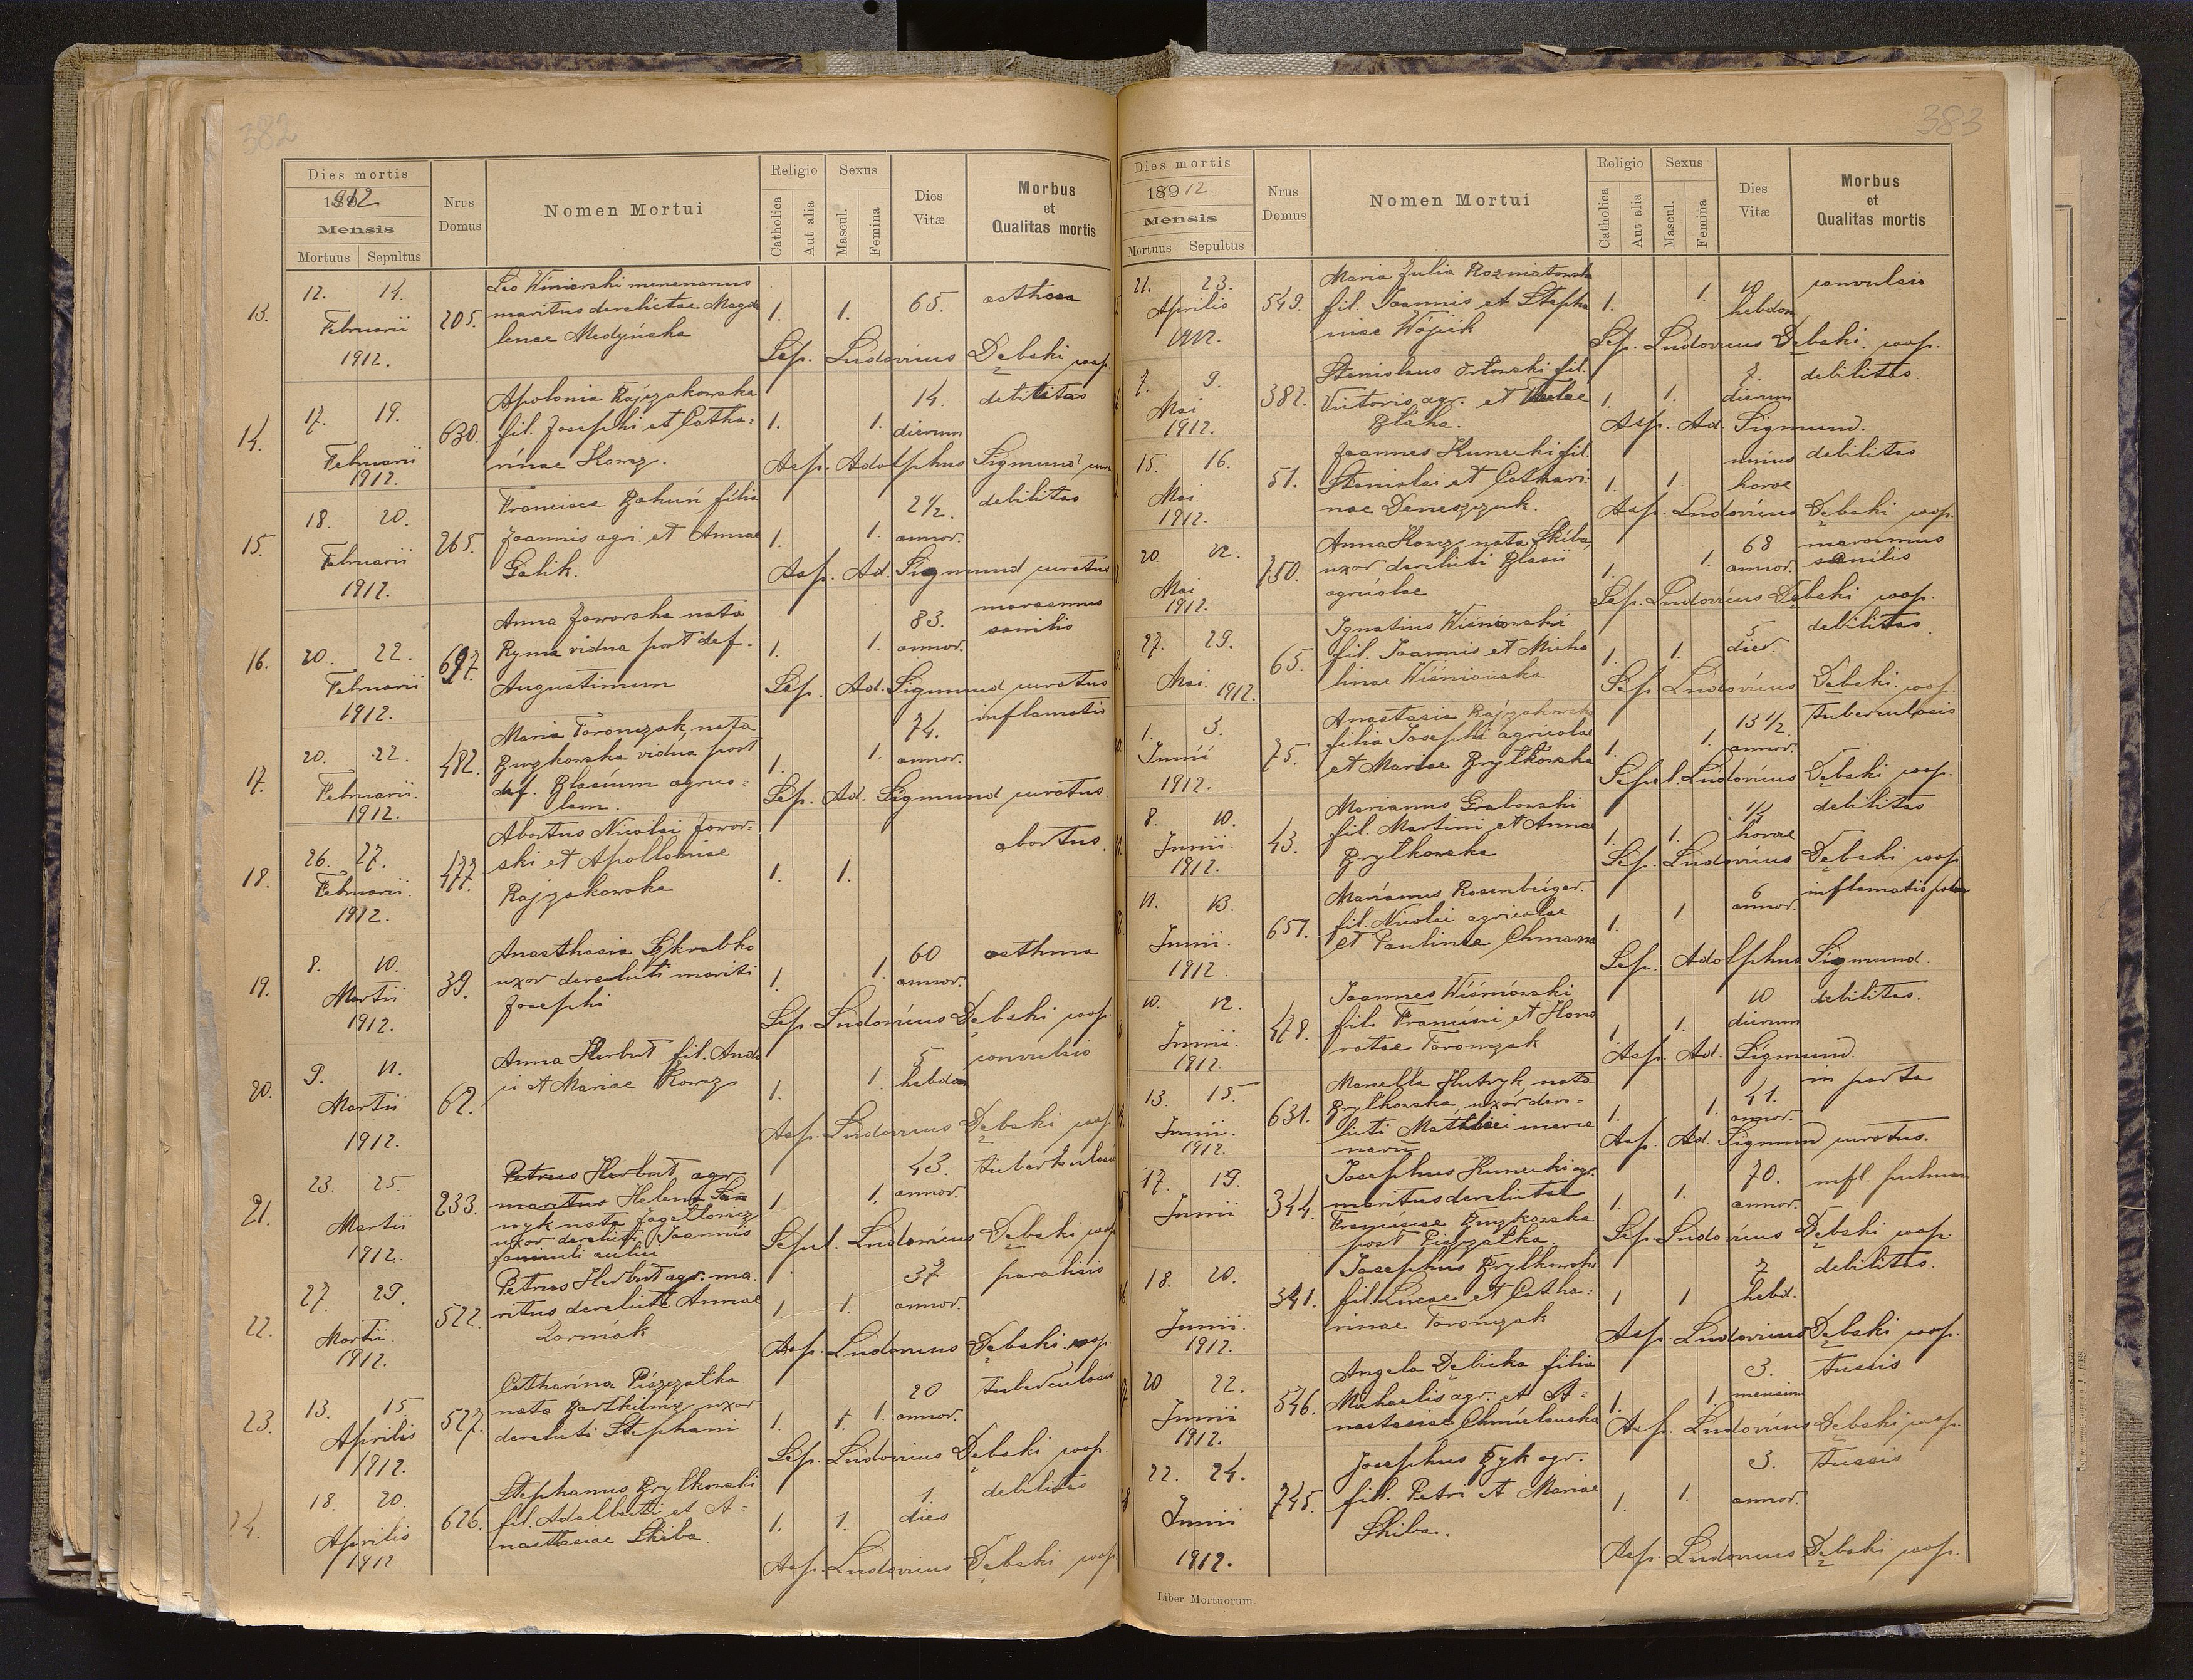 382
Dies mortis
1912
Mensis
Mortuus Sepultus
Nrus Domus
Nomen Mortui
Religio
Catholica
Aut alia
Sexus
Mascul.
Femina
Dies Vitæ
Morbus et Qualitas mortis
13. 12. 14. Februarii 1912. 205.
Leo Winiarski
maritus derelictae Magda
lenae Medyńska
1. 1. 65.
Sep. Ludovicus Dębski coop.
14. 17. 19. Februarii 1912. 630.
Apolonia Rajzakowska
fil. Josephi et Catha=
rinae Korcz.
1. 1. 14. dierum debilitas
Asp. Adolphus Sigmund
15. 18. 20. Februarii 1912. 265.
Francisca Bahuń filia
Joannis agri. et Annae
Galik.
1. 1. 2 1/2. annor. debilitas
Asp. Ad. Sigmund curatus
16. 20. 22. Februarii 1912. 697.
Anna Jaworska nata
Ryma vidua post def.
Augustinum
1. 1. 83. annor. marasmus senilis
Sep. Ad. Sigmund curatus
17. 20. 22. Februarii. 1912. 482.
Maria Toronczak, nata
vidua post
def. Blasium agrico=
lam.
1. 1. 74. annor. inflamatio
Sep. Ad. Sigmund curatus.
18. 26. 27. Februarii. 1912. 477.
Abortus Nicolai Jawor=
ski et Apolloniae
Rajzakowska
1. 1. abortus.
19. 8. 10. Martii 1912. 39.
Anasthasia Skrabko
uxor derelicti mariti
Josephi
1. 1. 60 annor. asthma
Sep. Ludovicus Dębski coop.
20. 9. 11. Martii 1912. 62.
Anna Herbut fil. Andr
ei et Mariae Korcz
1. 1. 5 hebdom convulsio
Asp. Ludovicus Dębski coop.
21. 23. 25. Martii 1912. 233.
Petrus Herbut agr
maritus Helena
nata Jagellowicz
uxor derelicti Joannis
famuli aulici
1. 1. 43. annor. tuberkulosis
Sepul. Ludovicus Dębski coop
22. 27. 29. Martii. 1912. 522.
Petrus Herbut agr. ma.
ritus derelictae Annae
1. 1. 37 annor. paralisis
Asp. Ludovicus Dębski coop
23. 13. 15. Aprilis 1912. 527.
Catharina Piszczatka
nata uxor
derelicti Stephani
1. 1. 1. 20 annor. tuberculosis
Sep. Ludovicus Dębski coop.
24. 18. 20. Aprilis 1912 626.
Stephanus Brytkowski
fil. Adalberti et A=
nastasiae Skiba.
1. 1. 1. dies debilitas
Asp. Ludovicus Dębski coop.
383
Dies mortis
1912.
Mensis
Mortuus Sepultus
Nrus Domus
Nomen Mortui
Religio
Catholica
Aut alia
Sexus
Mascul.
Femina
Dies Vitæ
Morbus et Qualitas mortis
21. 23. Aprilis 1912. 549.
Maria Julia Rozniatowska
fil. Joannis et Stepha
niae Wójcik
1. 1. 10 hebdom convulsio
Sep. Ludovicus Dębski. coop.
7. 9. Mai 1912. 382.
Stanislaus Orłowski fil.
Victoris agr. et Theclae
Blaha.
1. 1. 7. dierum debilitas.
Asp. Ad. Sigmund.
15. 16. Mai. 1912. 51.
Joannes Kunecki fil.
Stanislai et Cathari
nae Deneszczuk.
1. 1. unius horae debilitas
Asp. Ludovicus Dębski coop.
20. 22. Mai 1912. 750.
Anna Korcz nata Skiba,
uxor derelicti Blasii
agricolae
1. 1. 68 annor. marasmus senilis
Sep. Ludovicus Dębski coop.
27. 29. Mai. 1912. 65.
Ignatius Wisniowski
fil. Joannis et Micha
linae Wisniowska
1. 1. 5 dier. debilitas.
Sep Ludovicus Dębski. coop.
1. 3. Junii 1912. 75.
Anastasia Rajzakowska
filia Josephi agricolae
et Mariae Brytkowska
1. 1. 13 1/2. annor. Tuberculosis
Sepul. Ludovicus Dębski coop.
8. 10. Junii 1912. 43.
Marianus Grabowski
fil. Martini et Annae
Brytkowska
1. 1. 1/2 horae debilitas
Sep. Ludovicus Dębski coop
11. 13. Junii. 1912. 657.
Marianus Rosenbeiger.
fil. Nicolai agricolae
et Paulinae Chmarna
1. 1. 6 annor. inflamatio
Sep. Adolphus Sigmund.
10. 12. Junii. 1912. 478.
Joannes Wiśniowski
fil. Francisci et Hono
ratae Toronczak
1. 1. 10 dierum debilitas.
Asp. Ad. Sigmund.
13. 15. Junii. 1912. 631.
Marcella Hutryk, nata
Brytkowska, uxor dere=
licti Mathaei merce
narii
1. 1. 41. annor. in partu
Asp. Ad. Sigmund curatus.
17. 19. Junii 344.
Josephus Kunecki agr.
maritus derelictae
Franciscae
post Piszczatka.
1. 1. 70. annor. infl. pulmon
Sep. Ludovicus Dębski coop.
18. 20. Junii. 1912. 341.
Josephus Brytkowski
fil. Lucae et Catha=
rinae Torończak
1 1 7 hebd. debilitas.
Asp. Ludovicus Dębski coop.
20 22. Junii 1912. 546.
Angela Dębicka filia
Michaelis agr. et A=
nastasiae Chmielowska
1. 1 3. mensium tussis
Asp. Ludovicus Dębski coop.
22. 24. Junii 1912. 745.
Josephus Byk agr.
fil. Petri et Mariae
Skiba.
1. 1. 3. annor. tussis
Asp. Ludovicus Dębski coop.
Liber Mortuorum